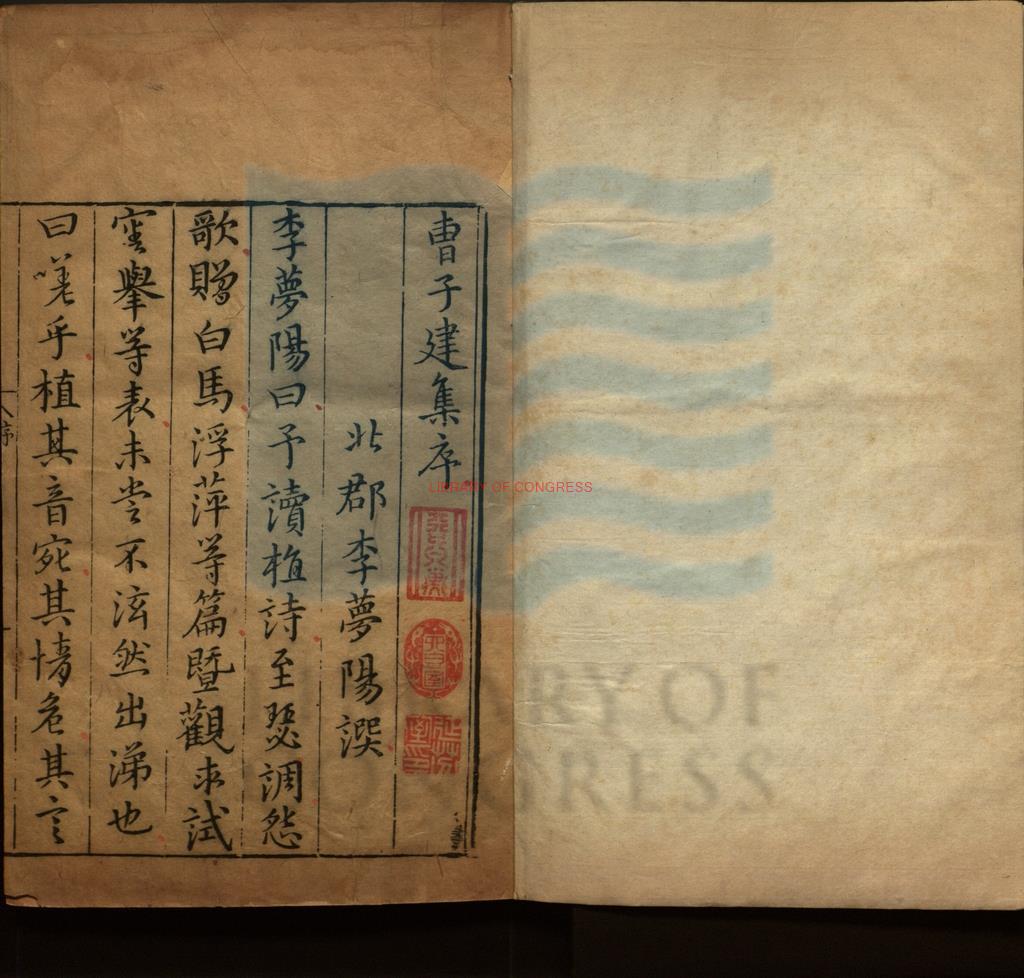 曹子建集序
北郡李夢陽譔
李夢陽曰予讀植詩至瑟調怨
歌贈白馬浮萍等篇暨觀求試
審舉等表未嘗不泫然出涕也
曰嗟乎植其音宛其情危其言
序
LIBRARY OF CONGRESS
LIBRARY OF
CONGRESS